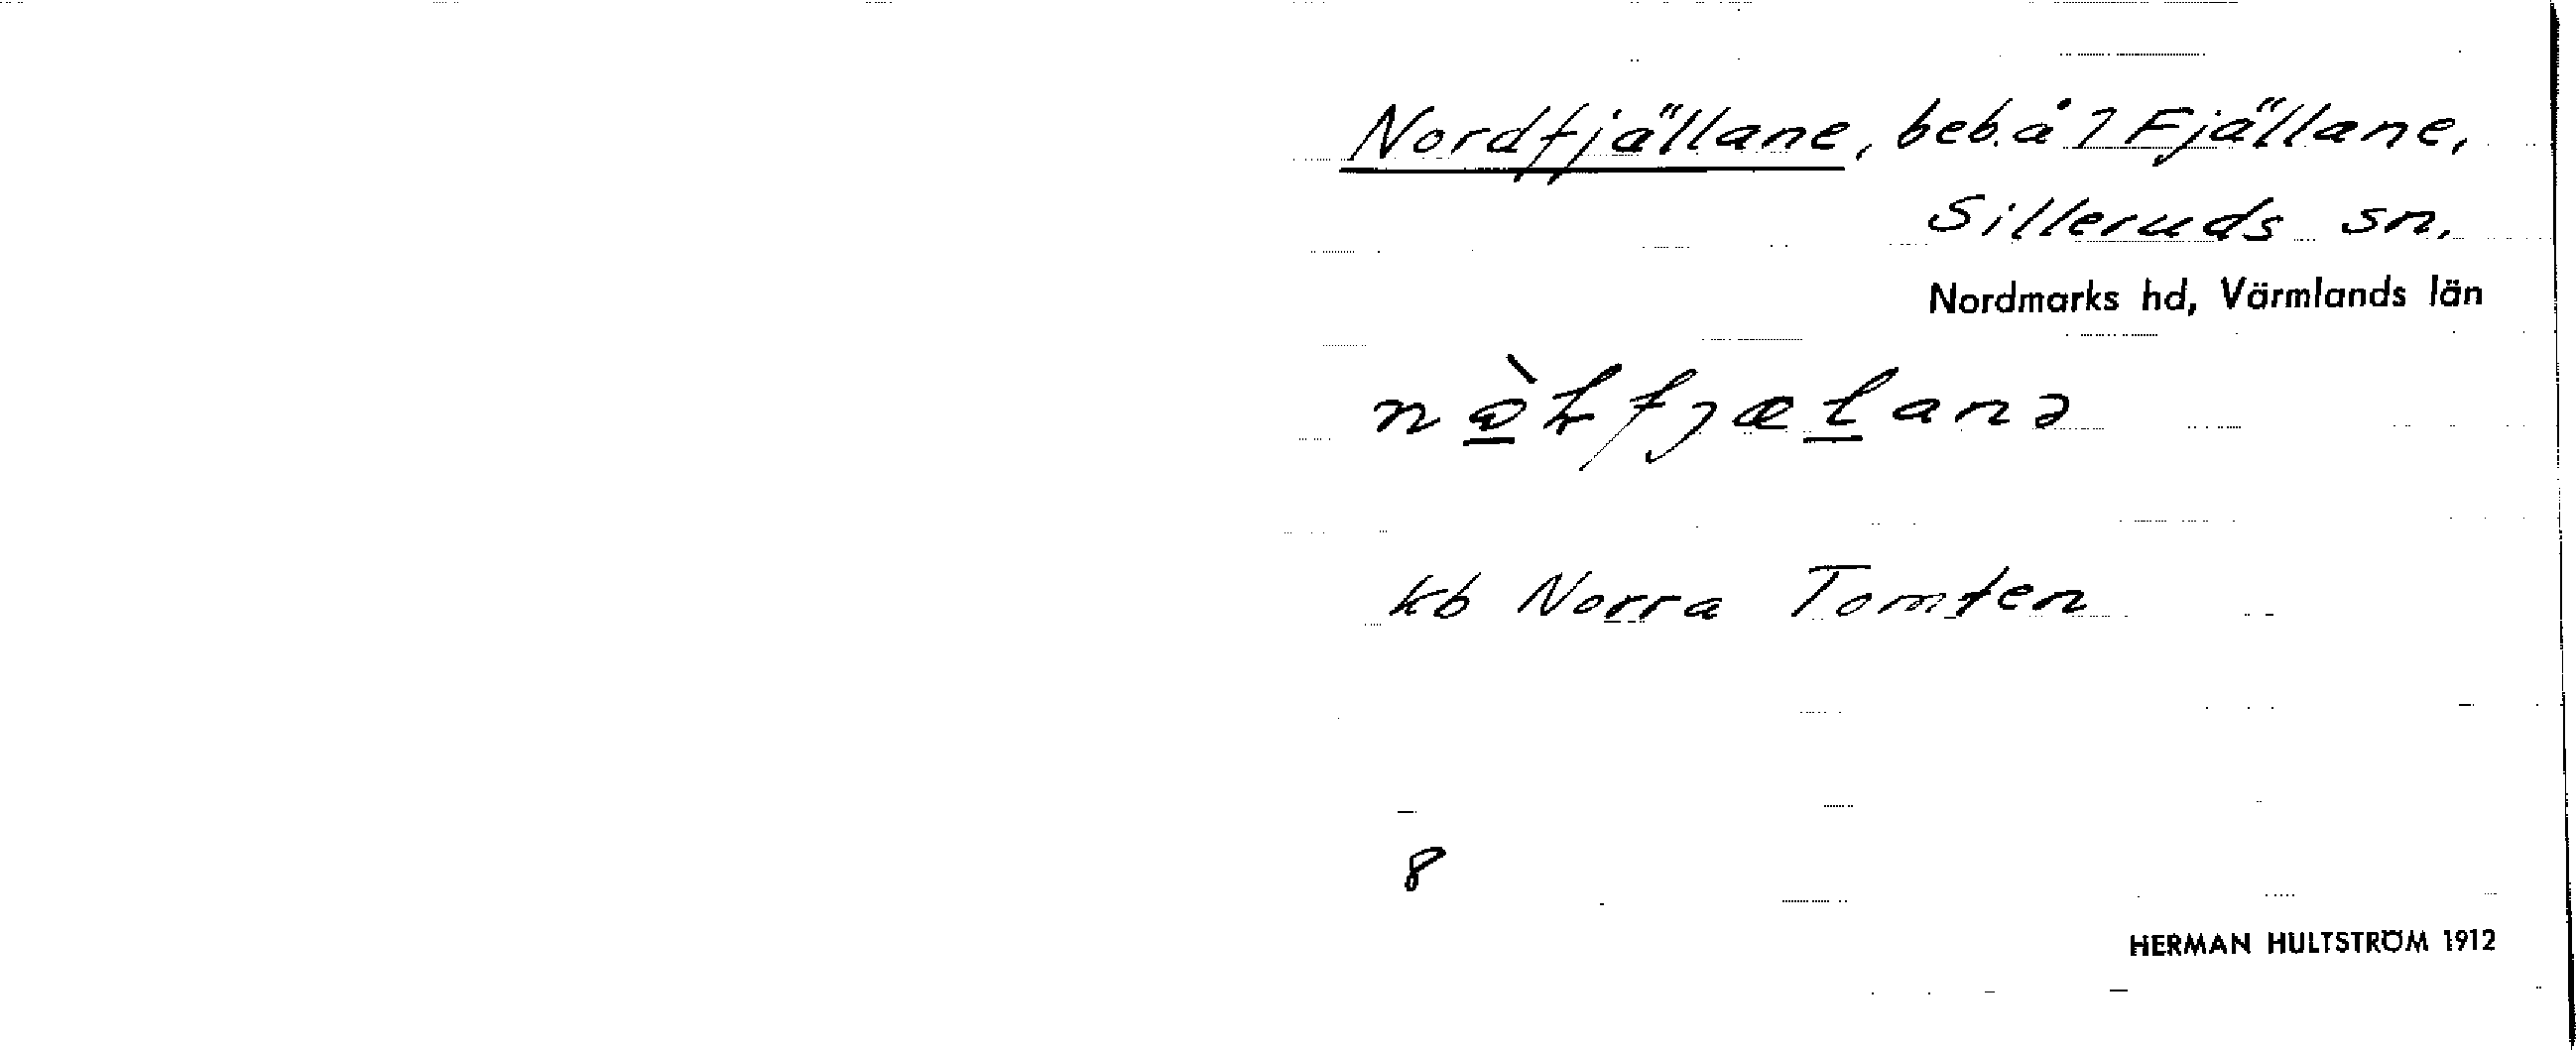 Nordfjällane, beb. å 1 Fjällane,
Silleruds sn.
Nordmarks hd, Värmlands län
kb Norra Tomten
8
HERMAN HULTSTRÖM 1912